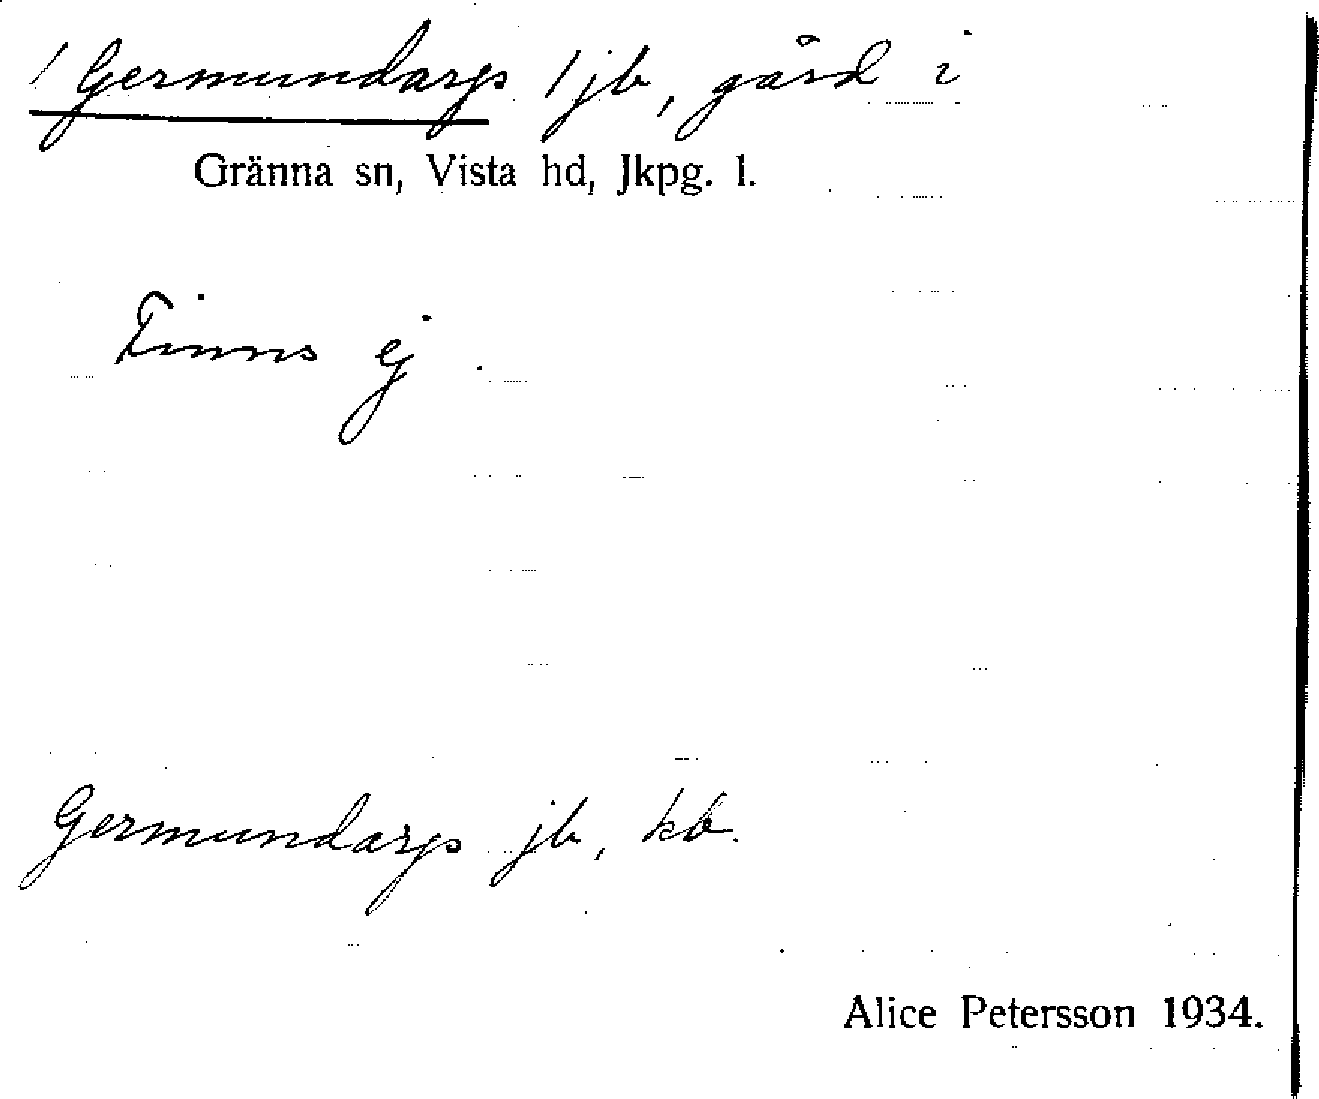 / Germundarp / jb, gård i
Gränna sn, Vista hd, Jkpg. l.
Finns ej.
Germundarp jb, kb.
Alice Petersson 1934.